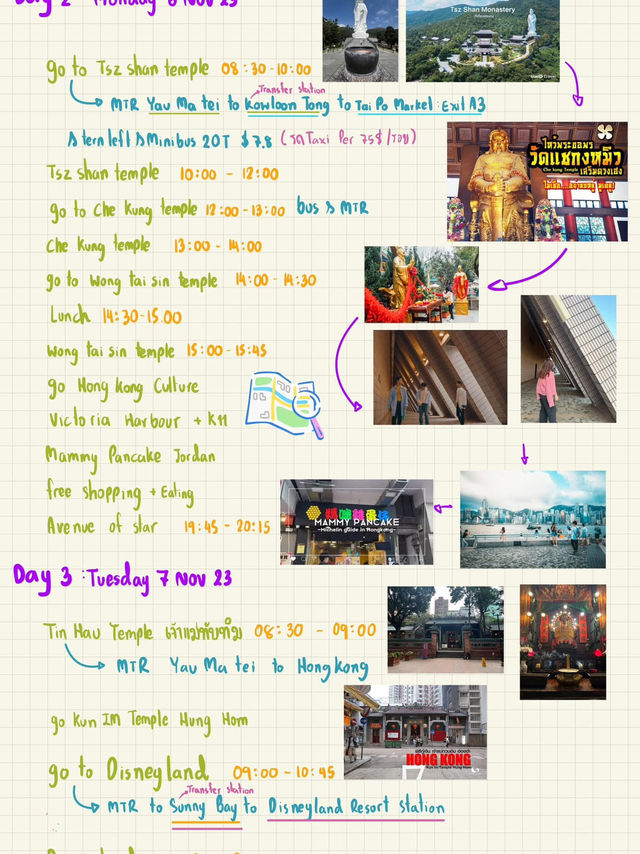 Day 2 Monday 6 Nov 23
Tsz Shan Monastery
go to Tsz shan temple 08:30-10:00
Transfer station
MTR Yau Ma tei to Kowloon Tong to Tai Po Market : Exit A3
Minibus 20T $7.8 (รถTaxi Per 75$/รอบ)
Tsz shan temple 10:00 - 12:00
ไหว้พระขอพร
วัดแชกงหมิว
Che kung Temple เสริมดวงเฮง
go to Che Kung temple 12:00-13:00 bus & MTR
Che Kung temple 13:00 - 14:00
go to Wong tai sin temple 14:00 - 14:30
Lunch 14:30-15.00
Wong tai sin temple 15:00 - 15:45
go Hong Kong Culture
Victoria Harbour + K11
Mammy Pancake Jordan
free shopping + Eating
Avenue of star 19:45 - 20:15
MAMMY PANCAKE
-Michelin guide in Hongkong-
Day 3 : Tuesday 7 Nov 23
Tin Hau Temple เจ้าแม่ทับทิม 08:30 - 09:00
MTR Yau Ma tei to Hong kong
go Kun IM Temple Hung Hom
HONG KONG
Kun Im Temple Hung Hom
go to Disneyland 09:00 - 10:45
Transfer station
MTR to Sunny Bay to Disneyland Resort Station